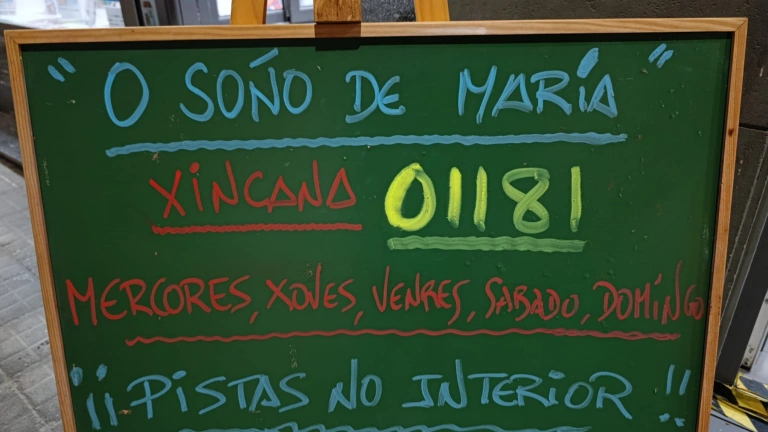 "O SOÑO DE MARÍA"
XINCANA 01181
MERCORES, XOVES, VENRES, SABADO, DOMINGO
¡¡PISTAS NO INTERIOR!!